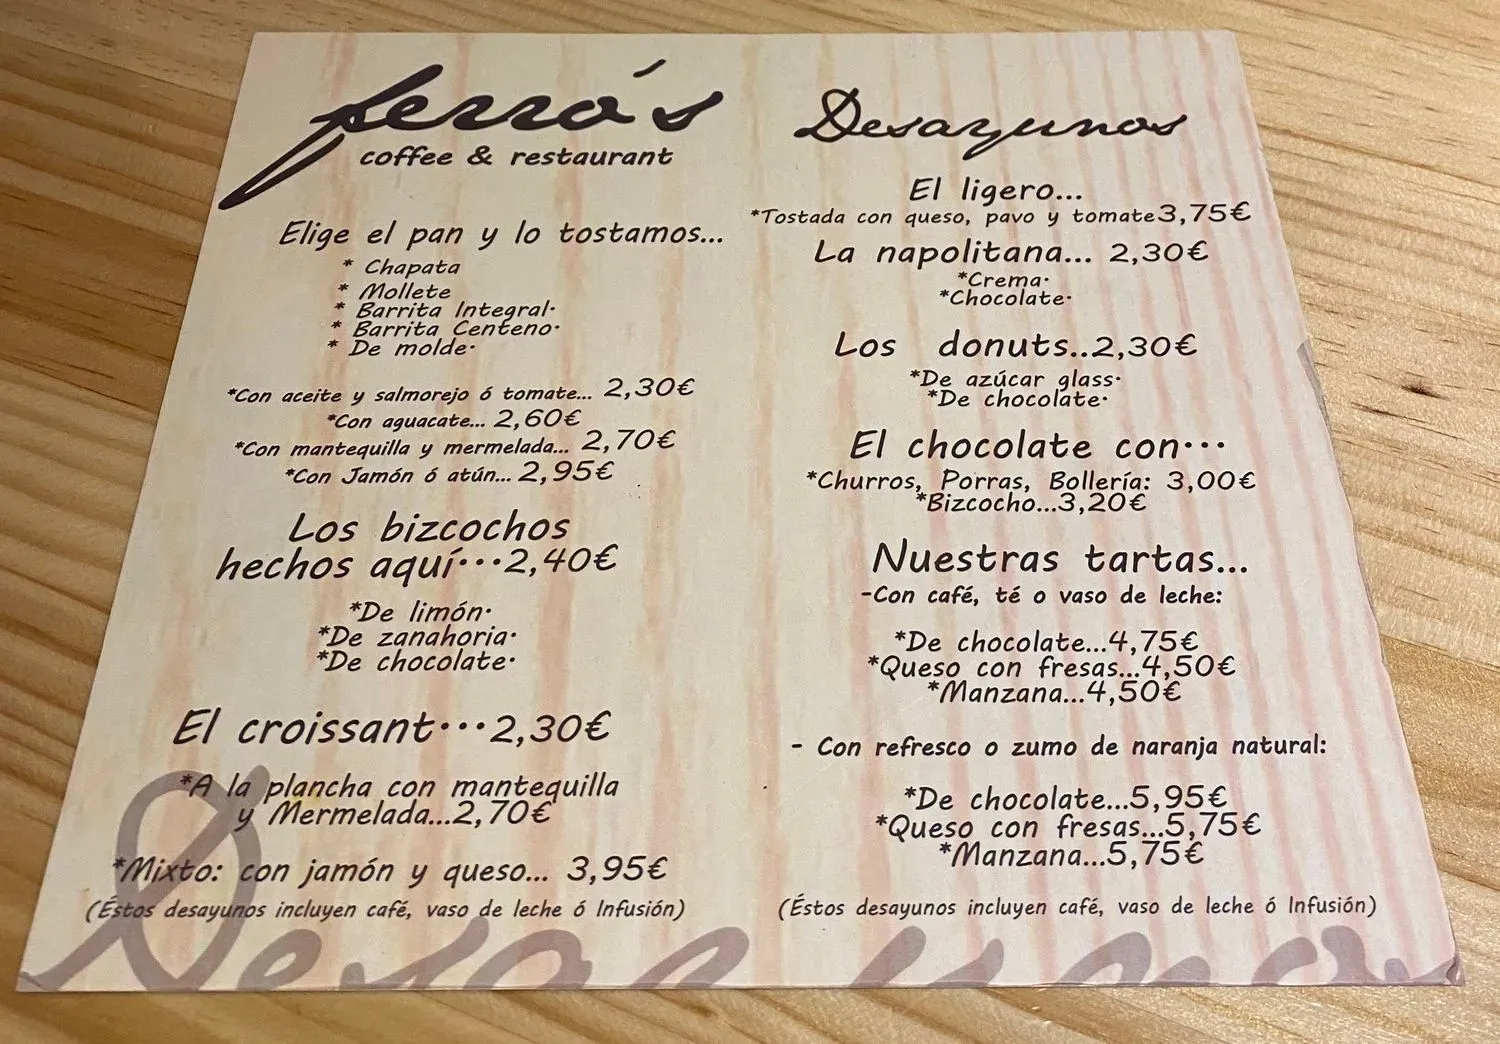 ferró's
coffee & restaurant
Elige el pan y lo tostamos...
* Chapata
* Mollete
* Barrita Integral·
* Barrita Centeno·
* De molde·
*Con aceite y salmorejo ó tomate... 2,30€
*Con aguacate... 2,60€
*Con mantequilla y mermelada... 2,70€
*Con Jamón ó atún... 2,95€
Los bizcochos
hechos aquí···2,40€
*De limón·
*De zanahoria·
*De chocolate·
El croissant···2,30€
*A la plancha con mantequilla
y Mermelada...2,70€
*Mixto: con jamón y queso... 3,95€
(Éstos desayunos incluyen café, vaso de leche ó Infusión)
Desayunos
El ligero...
*Tostada con queso, pavo y tomate 3,75€
La napolitana... 2,30€
*Crema·
*Chocolate·
Los donuts..2,30€
*De azúcar glass·
*De chocolate·
El chocolate con···
*Churros, Porras, Bollería: 3,00€
*Bizcocho...3,20€
Nuestras tartas...
-Con café, té o vaso de leche:
*De chocolate...4,75€
*Queso con fresas...4,50€
*Manzana...4,50€
- Con refresco o zumo de naranja natural:
*De chocolate...5,95€
*Queso con fresas...5,75€
*Manzana...5,75€
(Éstos desayunos incluyen café, vaso de leche ó Infusión)
Desayunos